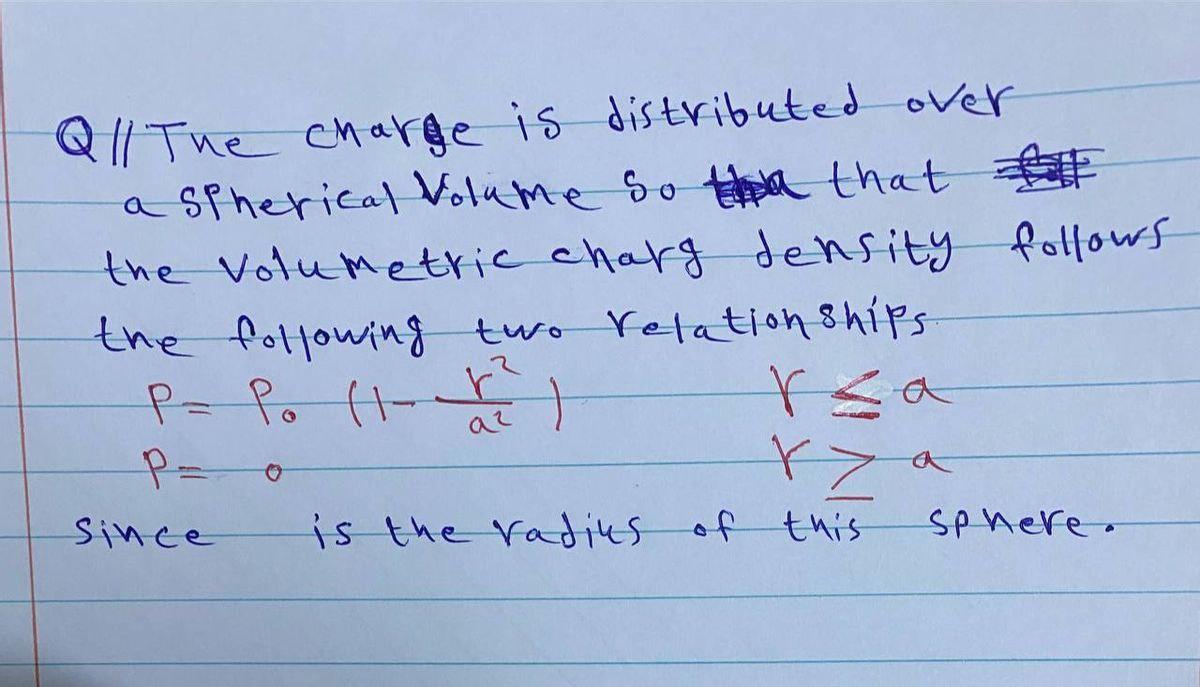 Q// The charge is distributed over
a spherical Volume so that
the volumetric charg density follows
the following two relationships
P= P₀ (1- r²/a²) r ≤ a
P= 0 r ≥ a
since is the radius of this sphere.